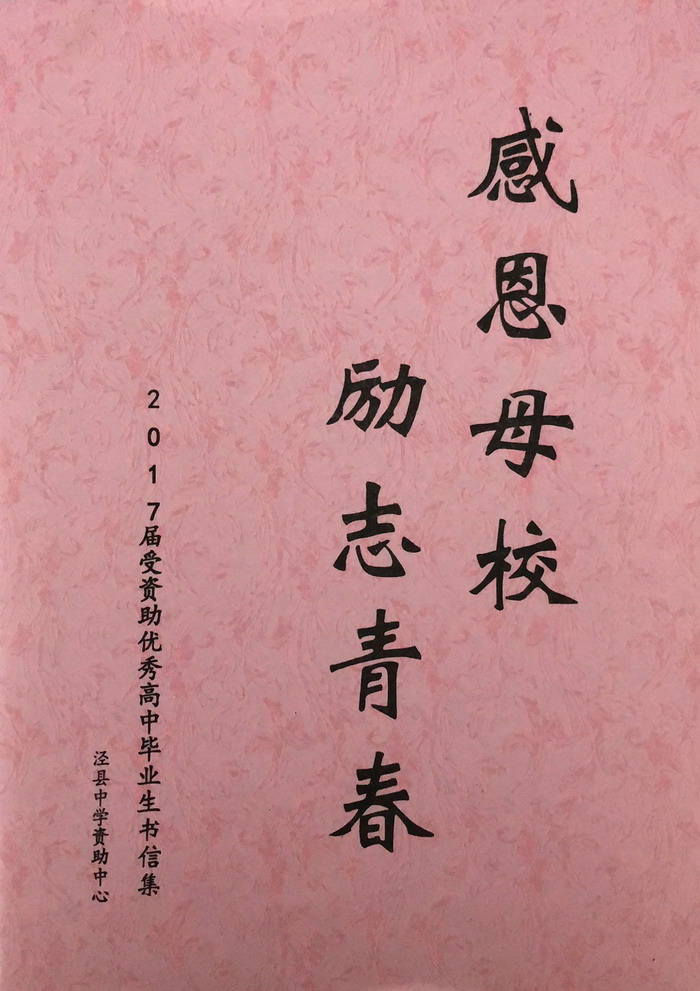 感恩母校
励志青春
2017届受资助优秀高中毕业生书信集
泾县中学资助中心